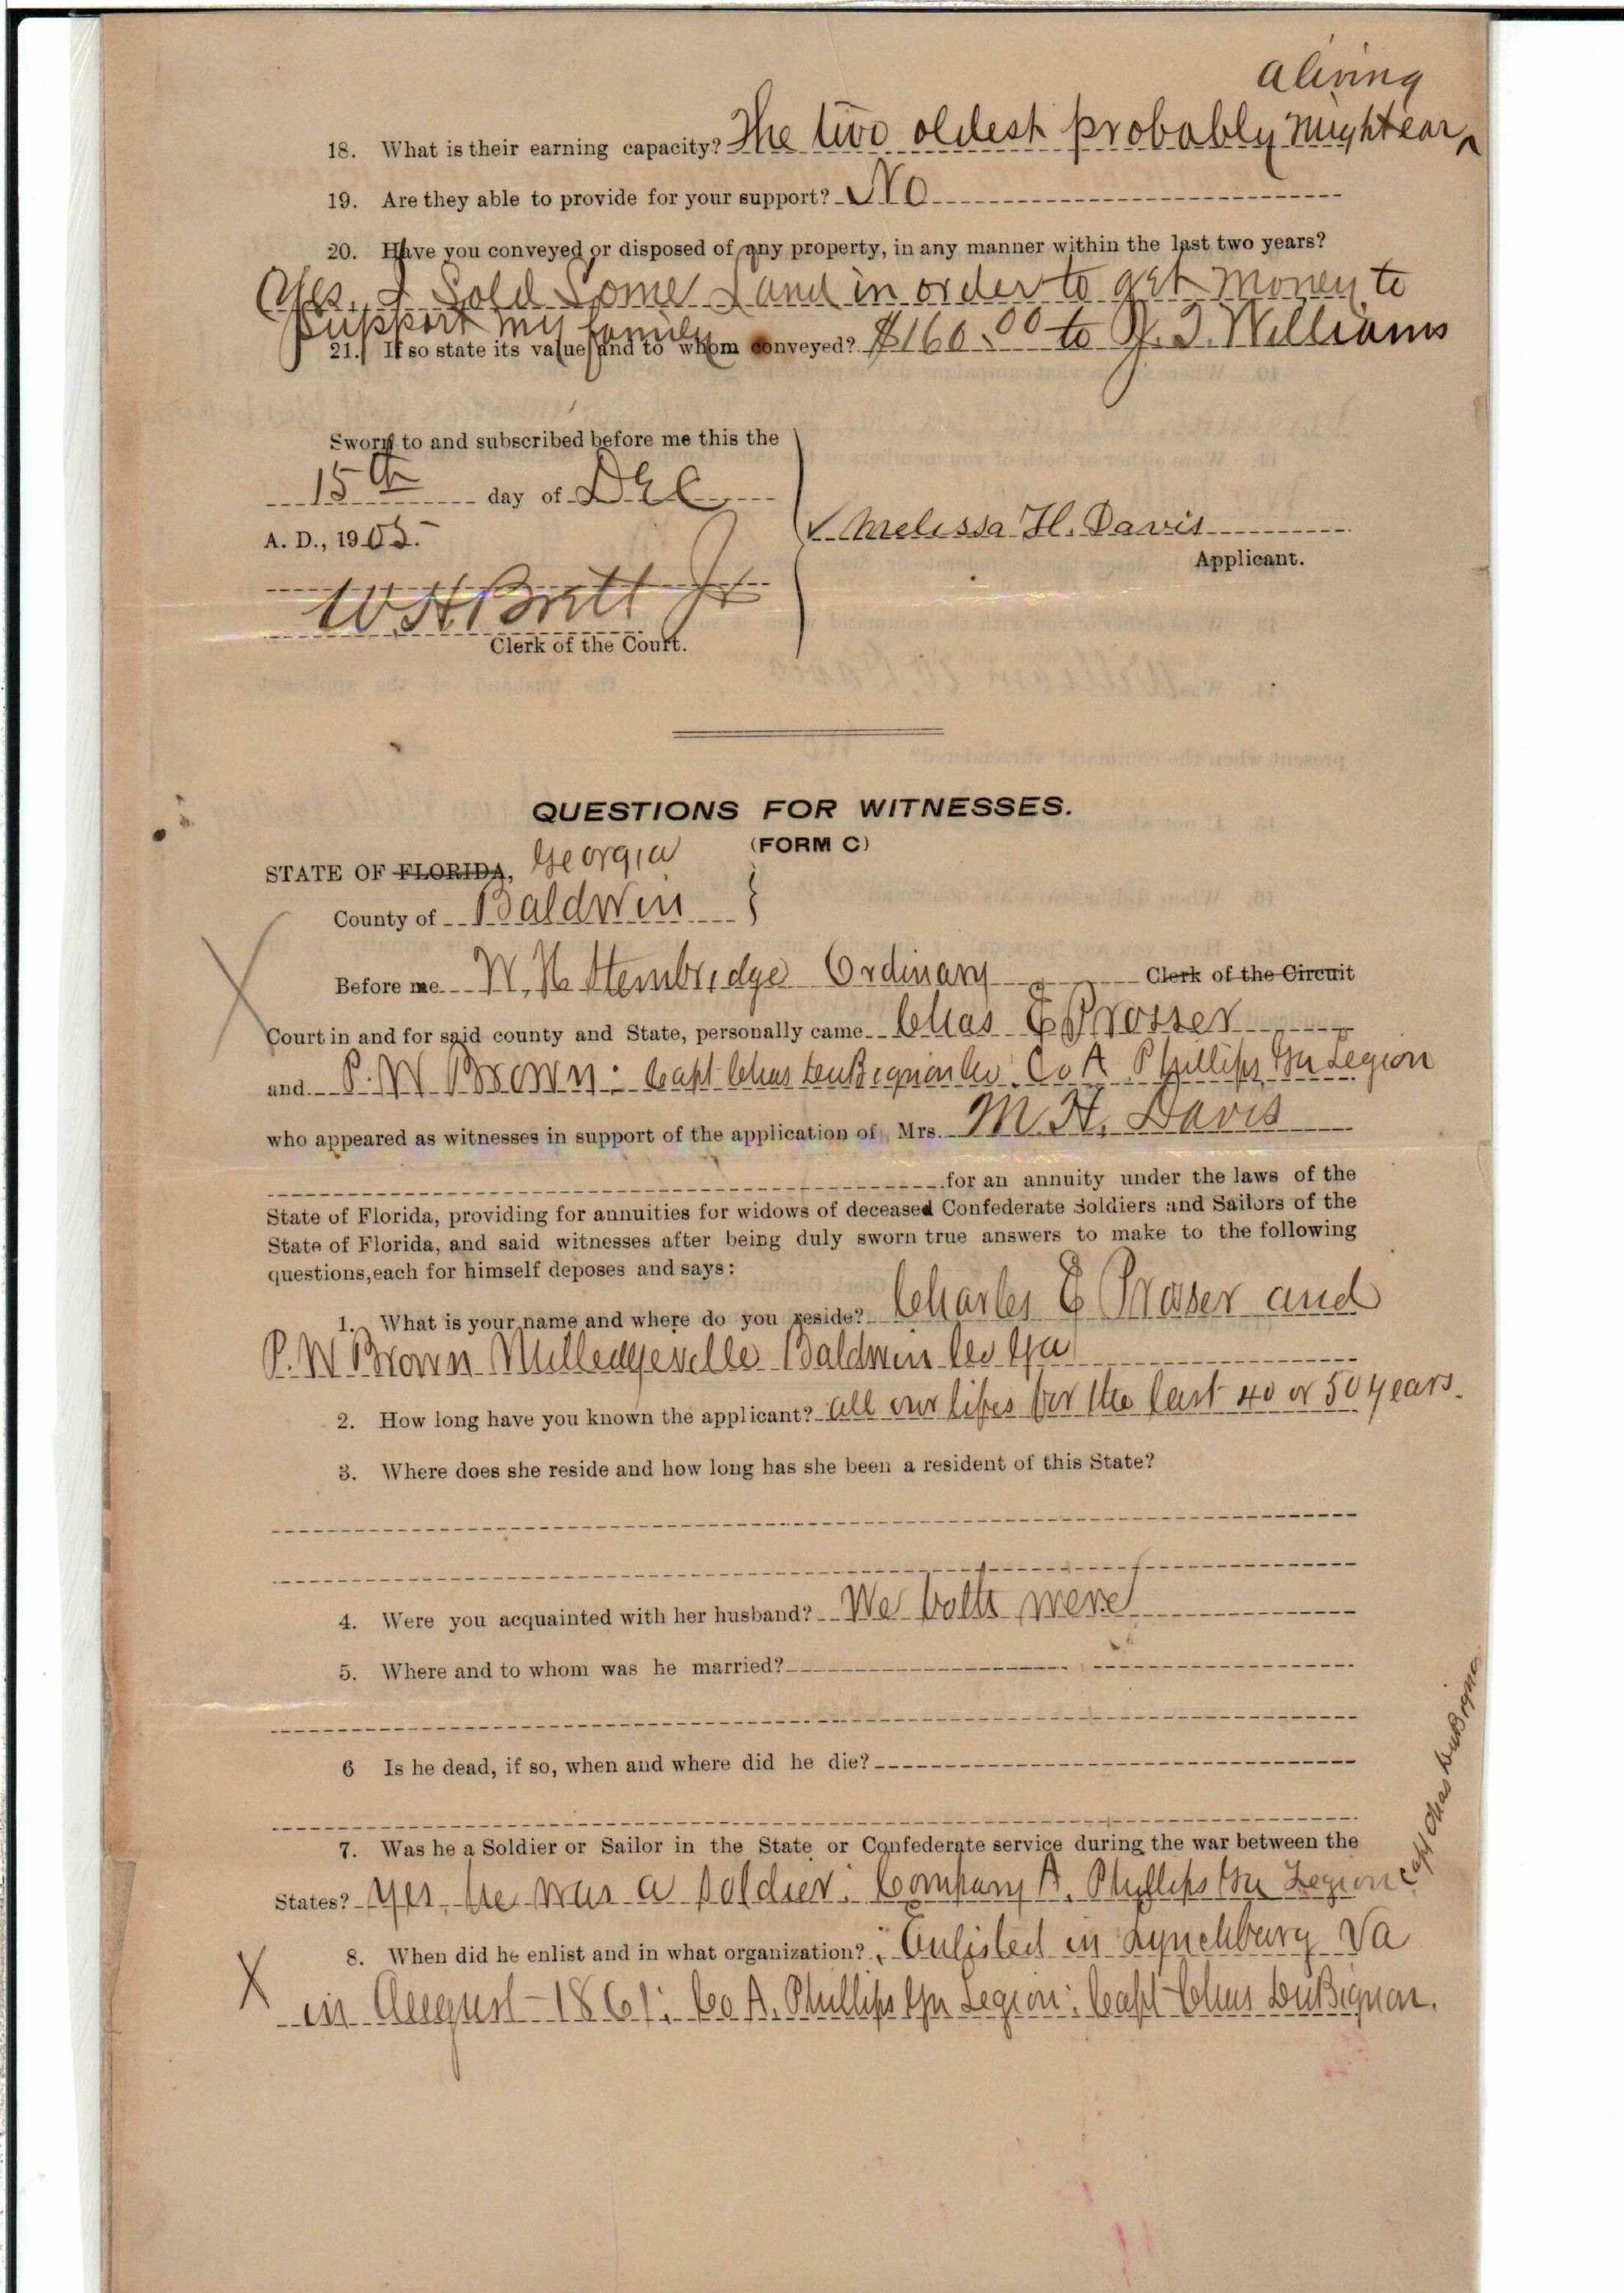 a living
18. What is their earning capacity? The two oldest probably might earn
19. Are they able to provide for your support? No
20. Have you conveyed or disposed of any property, in any manner within the last two years?
Yes. I Sold Some Land in order to get money to
support my family
21. If so state its value and to whom conveyed? $160.00 to J. T. Williams
Sworn to and subscribed before me this the
15th day of Dec
A. D., 1905.
Melissa H. Davis
Applicant.
W H Britt Jr
Clerk of the Court.
QUESTIONS FOR WITNESSES.
(FORM C)
STATE OF FLORIDA, Georgia
County of Baldwin
Before me W. H Stembridge Ordinary Clerk of the Circuit
Court in and for said county and State, personally came Chas E Prosser
and P. W Brown: Capt Chas DuBignon Co. Co A Phillips Ga Legion
who appeared as witnesses in support of the application of Mrs. M. H. Davis
for an annuity under the laws of the
State of Florida, providing for annuities for widows of deceased Confederate Soldiers and Sailors of the
State of Florida, and said witnesses after being duly sworn true answers to make to the following
questions, each for himself deposes and says:
1. What is your name and where do you reside? Charles E Prosser and
P. W Brown Milledgeville Baldwin Co Ga
2. How long have you known the applicant? all our lifes for the last 40 or 50 years.
3. Where does she reside and how long has she been a resident of this State?
4. Were you acquainted with her husband? We both were
5. Where and to whom was he married?
6 Is he dead, if so, when and where did he die?
7. Was he a Soldier or Sailor in the State or Confederate service during the war between the
States? Yes, he was a soldier: Company A. Phillips Ga Legion Capt Chas DuBignon
8. When did he enlist and in what organization? Enlisted in Lynchburg Va
in August 1861: Co A. Phillips Ga Legion: Capt Chas DuBignon.